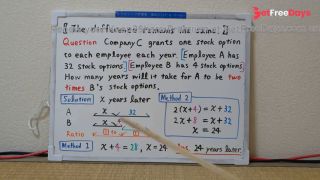 3aFreeDays
【The difference remains the same】
Question Company C grants one stock option
to each employee each year. Employee A has
32 stock options. Employee B has 4 stock options.
How many years will it take for A to be two
times B's stock options.
Solution x years later
Method 2
A x 32
B x 4
Ratio
2(x+4)=x+32
2x+8=x+32
x=24
Method 1 x+4=28, x=24 24 years later